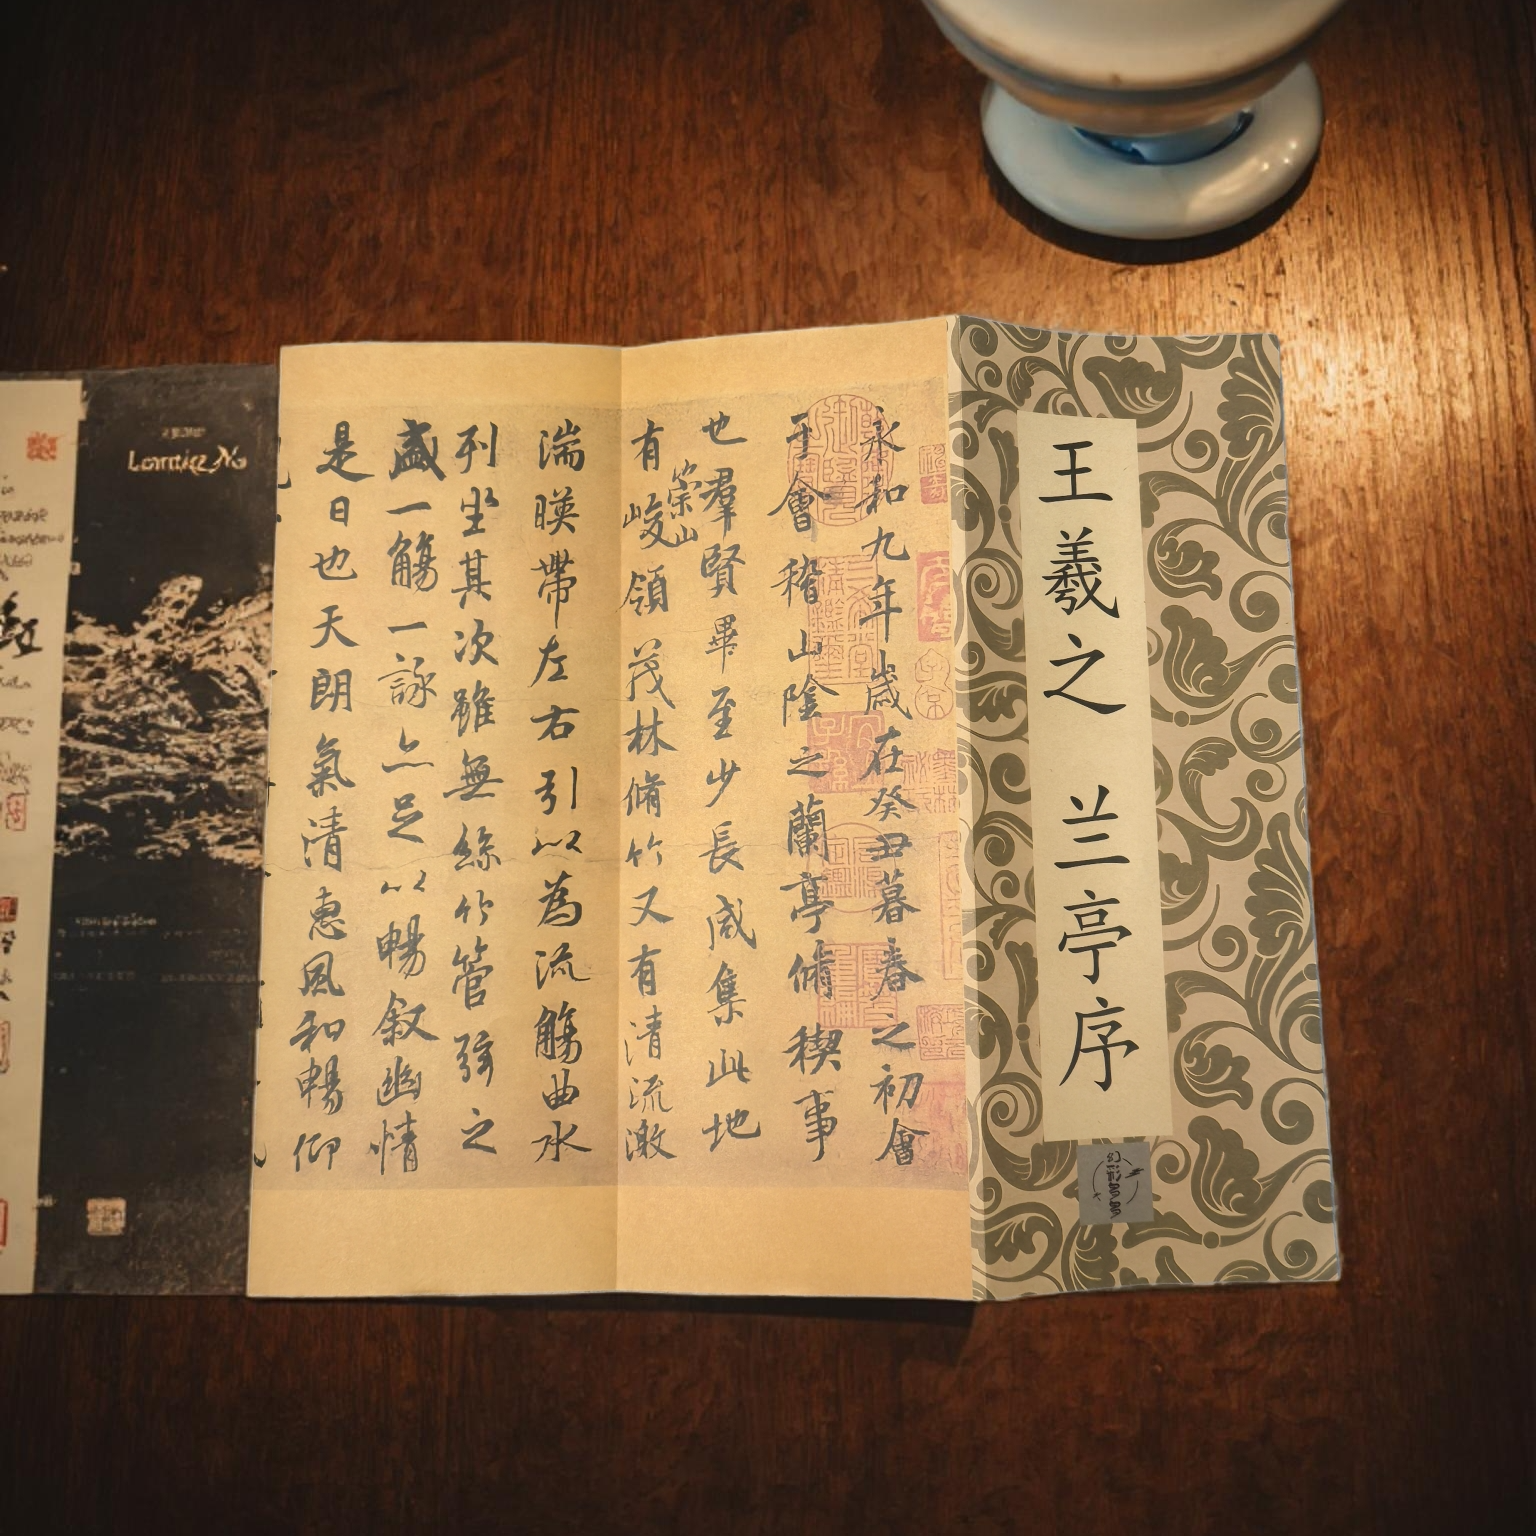 王羲之 兰亭序
永和九年歲在癸丑暮春之初會
于會稽山陰之蘭亭脩禊事
也羣賢畢至少長咸集此地
有崇山峻領茂林脩竹又有清流激
湍暎帶左右引以為流觴曲水
列坐其次雖無絲竹管弦之
盛一觴一詠亦足以暢叙幽情
是日也天朗氣清惠風和暢仰